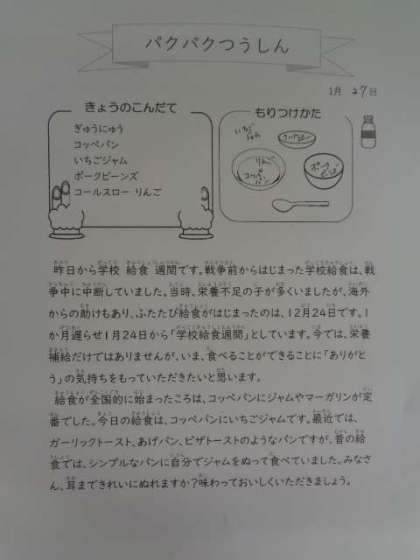 パクパクつうしん
1月 27日
きょうのこんだて
ぎゅうにゅう
コッペパン
いちごジャム
ポークビーンズ
コールスロー りんご
もりつけかた
いちご
ジャム
りんご
コッペパン
昨日から学校 給食 週間です。戦争前からはじまった学校給食は、戦
争中に中断していました。当時、栄養不足の子が多くいましたが、海外
からの助けもあり、ふたたび給食がはじまったのは、12月24日です。1
か月遅らせ1月24日から「学校給食週間」としています。今では、栄養
補給だけではありませんが、いま、食べることができることに「ありがと
う」の気持ちをもっていただきたいと思います。
給食が全国的に始まったころは、コッペパンにジャムやマーガリンが定
番でした。今日の給食は、コッペパンにいちごジャムです。最近では、
ガーリックトースト、あげパン、ピザトーストのようなパンですが、昔の給
食では、シンプルなパンに自分でジャムをぬって食べていました。みなさ
ん、耳まできれいにぬれますか?味わっておいしくいただきましょう。